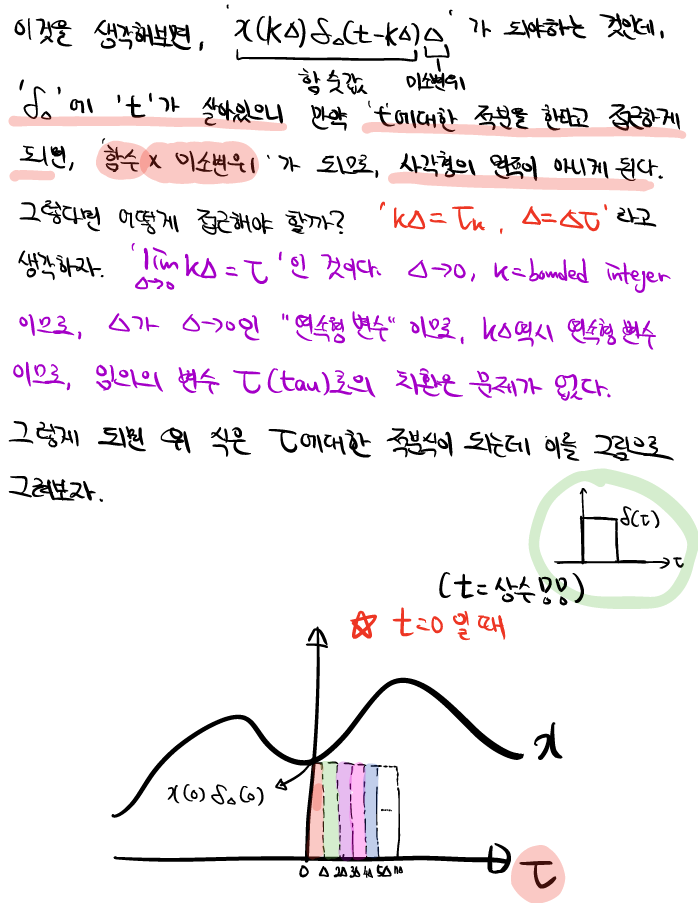 이것을 생각해보면, 'x(kΔ)δ_Δ(t-kΔ)Δ'가 되야하는 것인데,
함숫값 미소변위
'δ_Δ'에 't'가 살아있으니 만약 't'에대한 적분을 한다고 접근하게
되면, '함수 x 미소변위'가 되므로, 사각형의 면적이 아니게 된다.
그렇다면 어떻게 접근해야 할까? 'kΔ=τ_k, Δ=Δτ'라고
생각하자. 'lim_{Δ→0} kΔ=τ'인 것이다. Δ→0, k=bounded integer
이므로, Δ가 Δ→0인 "연속형 변수"이므로, kΔ역시 연속형 변수
이므로, 임의의 변수 τ(tau)로의 치환은 문제가 없다.
그렇게 되면 위 식은 τ에대한 적분식이 되는데 이를 그림으로
그려보자.
δ(τ)
τ
(t=상수)
☆ t=0 일 때
x
x(0)δ_Δ(0)
0 Δ 2Δ 3Δ 4Δ 5Δ nΔ
τ